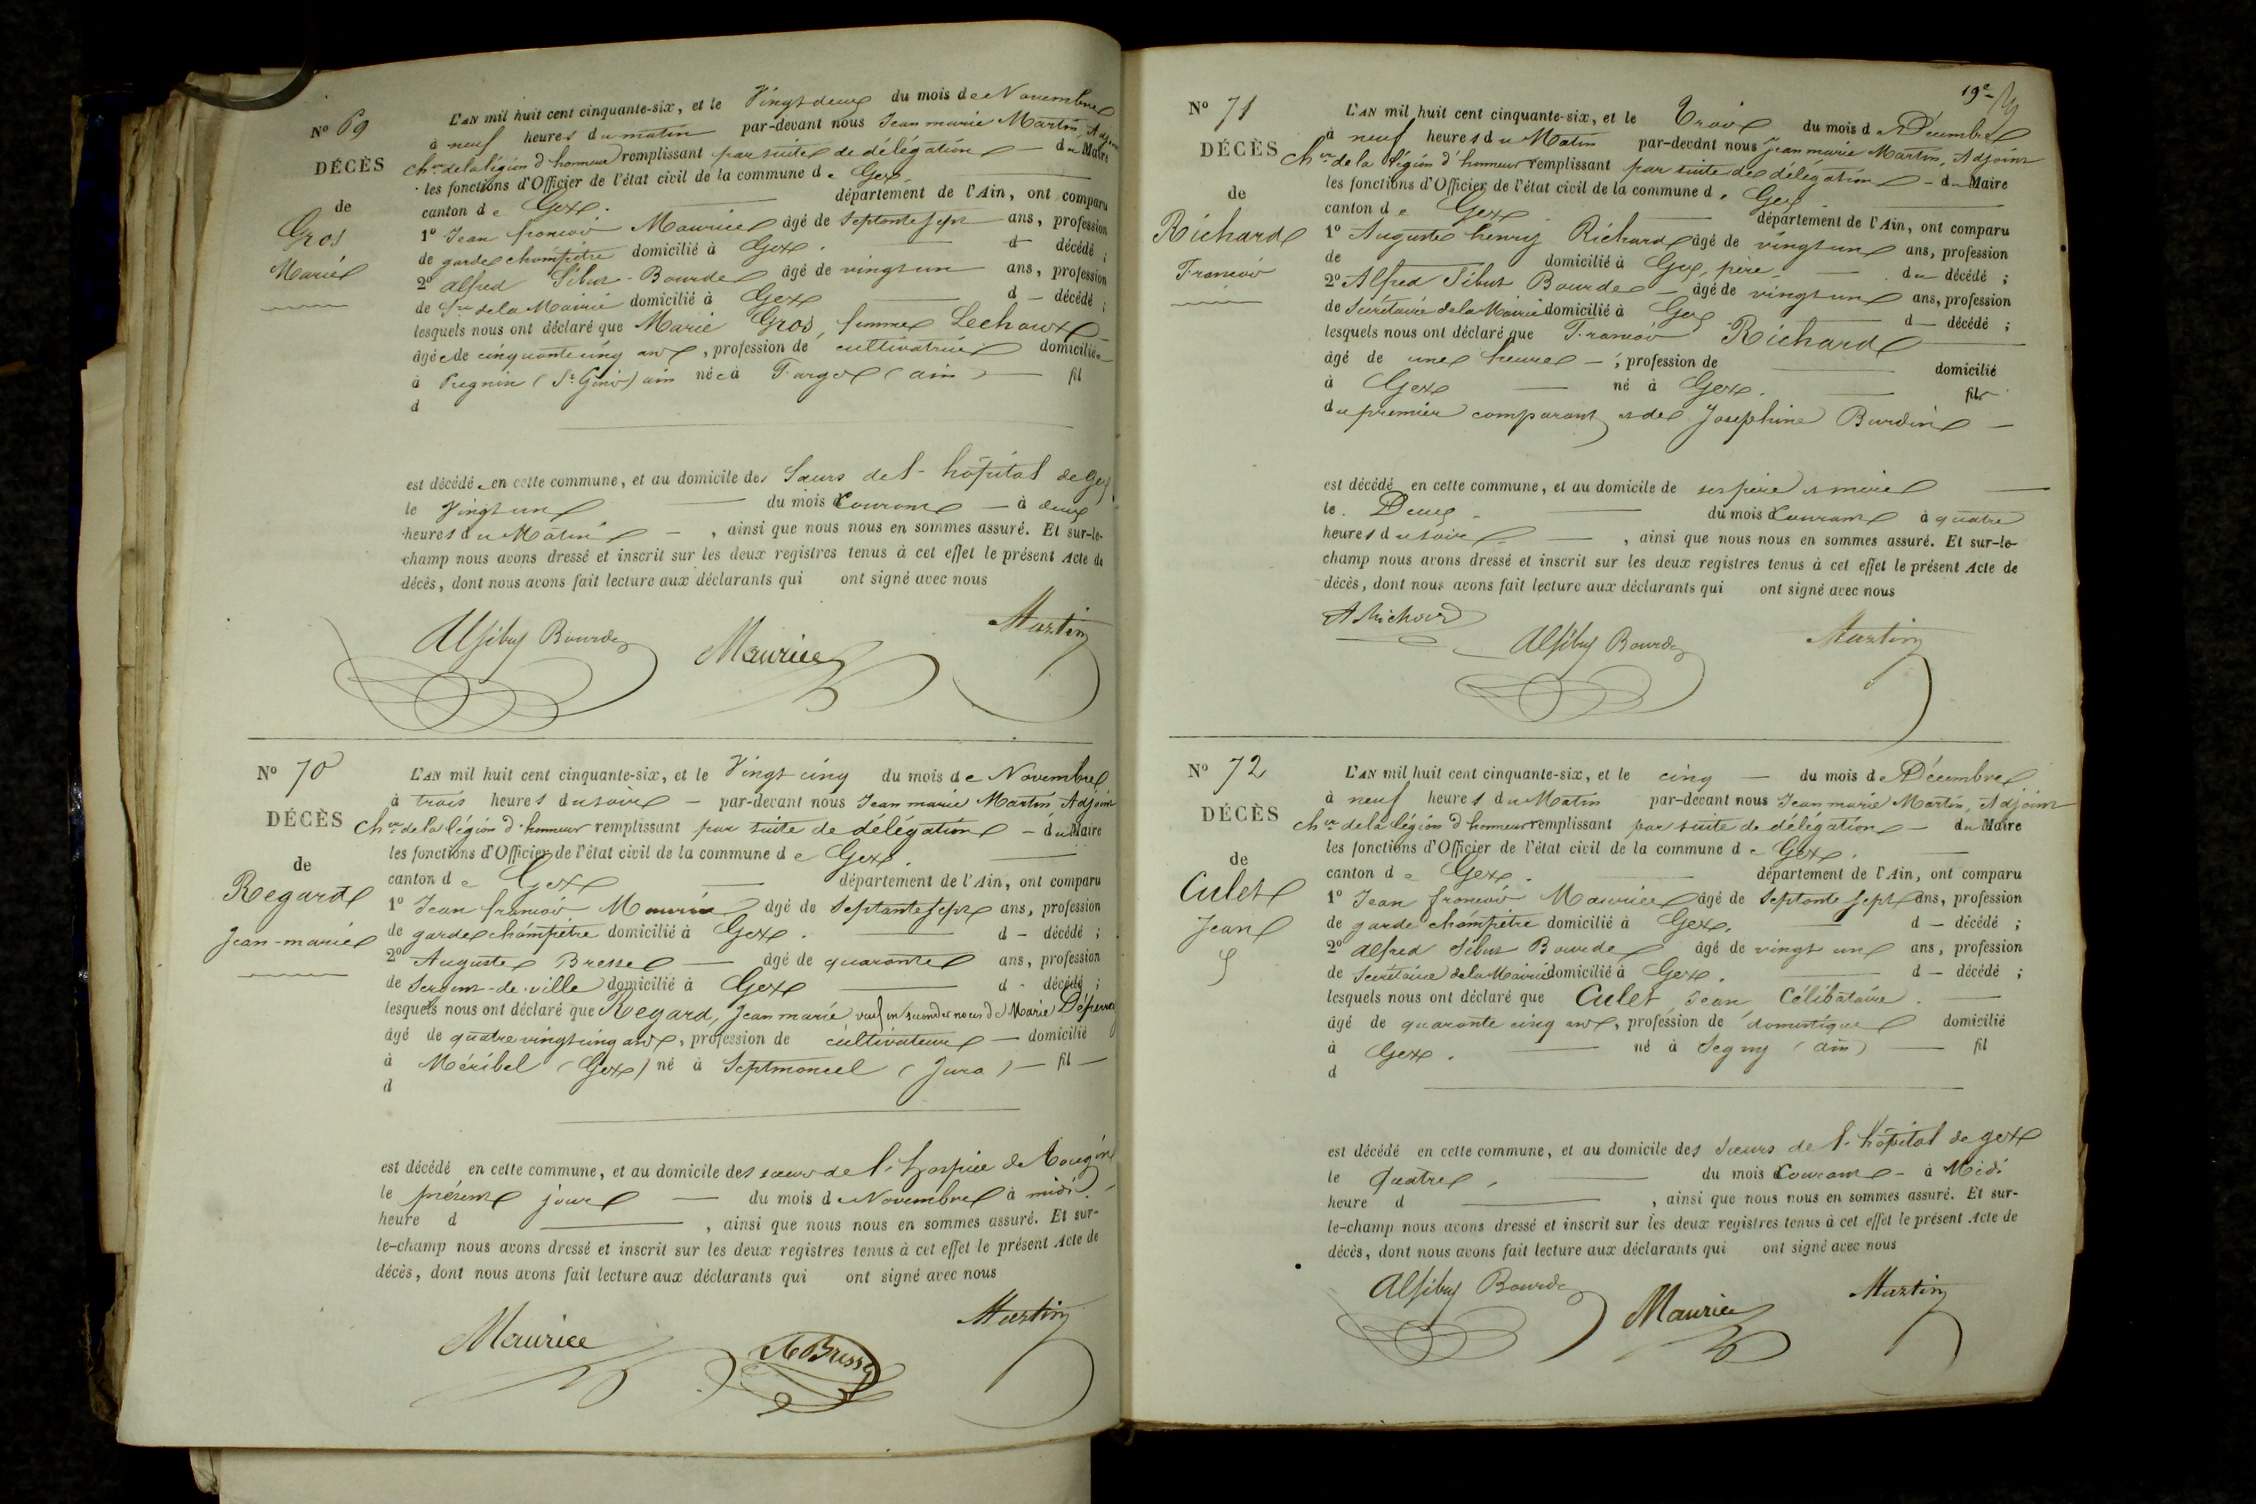 Nº 69
DÉCÈS
de
Gros
Marie
L'AN mil huit cent cinquante-six, et le Vingt deux du mois de Novembre
à neuf heures du matin par-devant nous Jean marie Martin, Adjoint
Cher de la légion d'honneur remplissant par suite de délégation — du Maire
les fonctions d'Officier de l'état civil de la commune de Gex.
canton de Gex. département de l'Ain, ont comparu
1º Jean francois Maurice âgé de septante sept ans, profession
de garde champêtre domicilié à Gex. — d décédé ;
2º alfred Sibut-Bourde âgé de vingt un ans, profession
de Sre de la Mairie domicilié à Gex — d — décédé ;
lesquels nous ont déclaré que Marie Gros, femme Lechaux
âgée de cinquante cinq ans, profession de cultivatrice domiciliée
à Pregnin (St Genis) ain née à Farges (ain) — fil
d
est décédée en cette commune, et au domicile des Sœurs de l'hôpital de Gex
le Vingt un — du mois Courant — à deux
heures du Matin — , ainsi que nous nous en sommes assuré. Et sur-le-
champ nous avons dressé et inscrit sur les deux registres tenus à cet effet le présent Acte de
décès, dont nous avons fait lecture aux déclarants qui ont signé avec nous
Alf Sibut Bourde Maurice Martin
Nº 70
DÉCÈS
de
Regard
Jean-marie
L'AN mil huit cent cinquante-six, et le Vingt cinq du mois de Novembre
à trois heures du soir — par-devant nous Jean marie Martin, Adjoint
Cher de la légion d'honneur remplissant par suite de délégation — du Maire
les fonctions d'Officier de l'état civil de la commune de Gex.
canton de Gex — département de l'Ain, ont comparu
1º Jean francois Maurice âgé de septante sept ans, profession
de garde champêtre domicilié à Gex. — d — décédé ;
2º Auguste Bresse — âgé de quarante ans, profession
de Sergent-de-ville domicilié à Gex — d - décédé ;
lesquels nous ont déclaré que Regard, Jean marie veuf en secondes noces de Marie
âgé de quatre vingt cinq ans, profession de cultivateur — domicilié
à Méribel (Gex) né à Septmoncel (Jura) — fil —
d
est décédé en cette commune, et au domicile des sœurs de l'hospice de Tougin
le présent jour — du mois de Novembre à midi.
heure d — , ainsi que nous nous en sommes assuré. Et sur-
le-champ nous avons dressé et inscrit sur les deux registres tenus à cet effet le présent Acte de
décès, dont nous avons fait lecture aux déclarants qui ont signé avec nous
Maurice A Bresse Martin
19e
Nº 71
DÉCÈS
de
Richard
Francois
L'AN mil huit cent cinquante-six, et le Trois du mois de Décembre
à neuf heures du Matin par-devant nous Jean marie Martin, Adjoint
Cher de la légion d'honneur remplissant par suite de délégation — du Maire
les fonctions d'Officier de l'état civil de la commune de Gex
canton de Gex — département de l'Ain, ont comparu
1º Auguste henry Richard âgé de vingt un ans, profession
de domicilié à Gex, père — du décédé ;
2º Alfred Sibut Bourde — âgé de vingt un ans, profession
de Secrétaire de la Mairie domicilié à Gex — d — décédé ;
lesquels nous ont déclaré que Francois Richard —
âgé de une heure — , profession de — domicilié
à Gex — né à Gex. — fils
du premier comparant et de Josephine Burdin —
est décédé en cette commune, et au domicile de ses père et mère —
le Deux — du mois Courant à quatre
heures du soir — , ainsi que nous nous en sommes assuré. Et sur-le-
champ nous avons dressé et inscrit sur les deux registres tenus à cet effet le présent Acte de
décès, dont nous avons fait lecture aux déclarants qui ont signé avec nous
A Richard Alf Sibut Bourde Martin
Nº 72
DÉCÈS
de
Culet
Jean
L'AN mil huit cent cinquante-six, et le cinq — du mois de Décembre
à neuf heures du Matin par-devant nous Jean marie Martin, Adjoint
Cher de la légion d'honneur remplissant par suite de délégation — du Maire
les fonctions d'Officier de l'état civil de la commune de Gex.
canton de Gex. — département de l'Ain, ont comparu
1º Jean francois Maurice âgé de septante sept ans, profession
de garde champêtre domicilié à Gex. — d — décédé ;
2º alfred Sibut Bourde âgé de vingt un ans, profession
de Secrétaire de la Mairie domicilié à Gex. — d — décédé ;
lesquels nous ont déclaré que Culet Jean Célibataire. —
âgé de quarante cinq ans, profession de domestique domicilié
à Gex. — né à Segny (ain) — fil
d
est décédé en cette commune, et au domicile des sœurs de l'hôpital de gex
le quatre, — du mois Courant — à Midi
heure d — , ainsi que nous nous en sommes assuré. Et sur-
le-champ nous avons dressé et inscrit sur les deux registres tenus à cet effet le présent Acte de
décès, dont nous avons fait lecture aux déclarants qui ont signé avec nous
Alf Sibut Bourde Maurice Martin